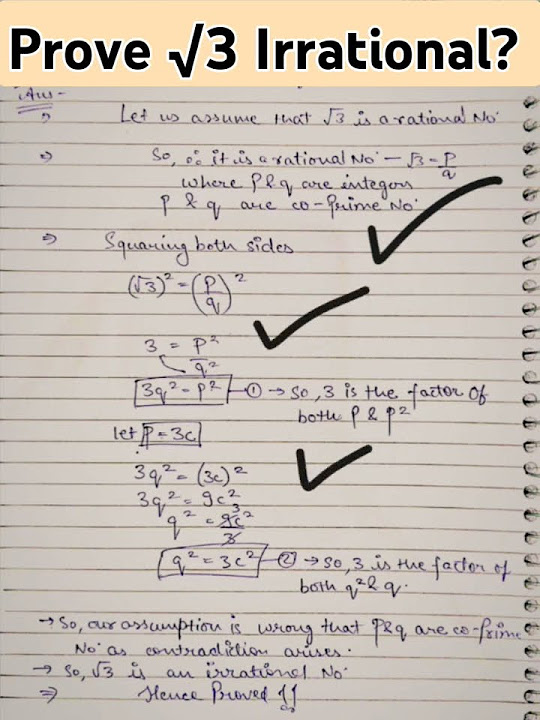 Prove √3 Irrational?
Ans -
⇒ Let us assume that √3 is a rational No.
⇒ So, ∴ it is a rational No. - √3 = p/q
where P & q are integers
P & q are co-prime No.
⇒ Squaring both sides
(√3)² = (P/q)²
3 = P²/q²
3q² = P² - ① → So, 3 is the factor of
both P & P²
let P = 3c
3q² = (3c)²
3q² = 9c²
q² = 9c²/3 3
q² = 3c² - ② → So, 3 is the factor of
both q² & q.
→ So, our assumption is wrong that P & q are co-prime
No. as contradiction arises.
→ So, √3 is an irrational No.
⇒ Hence Proved !!